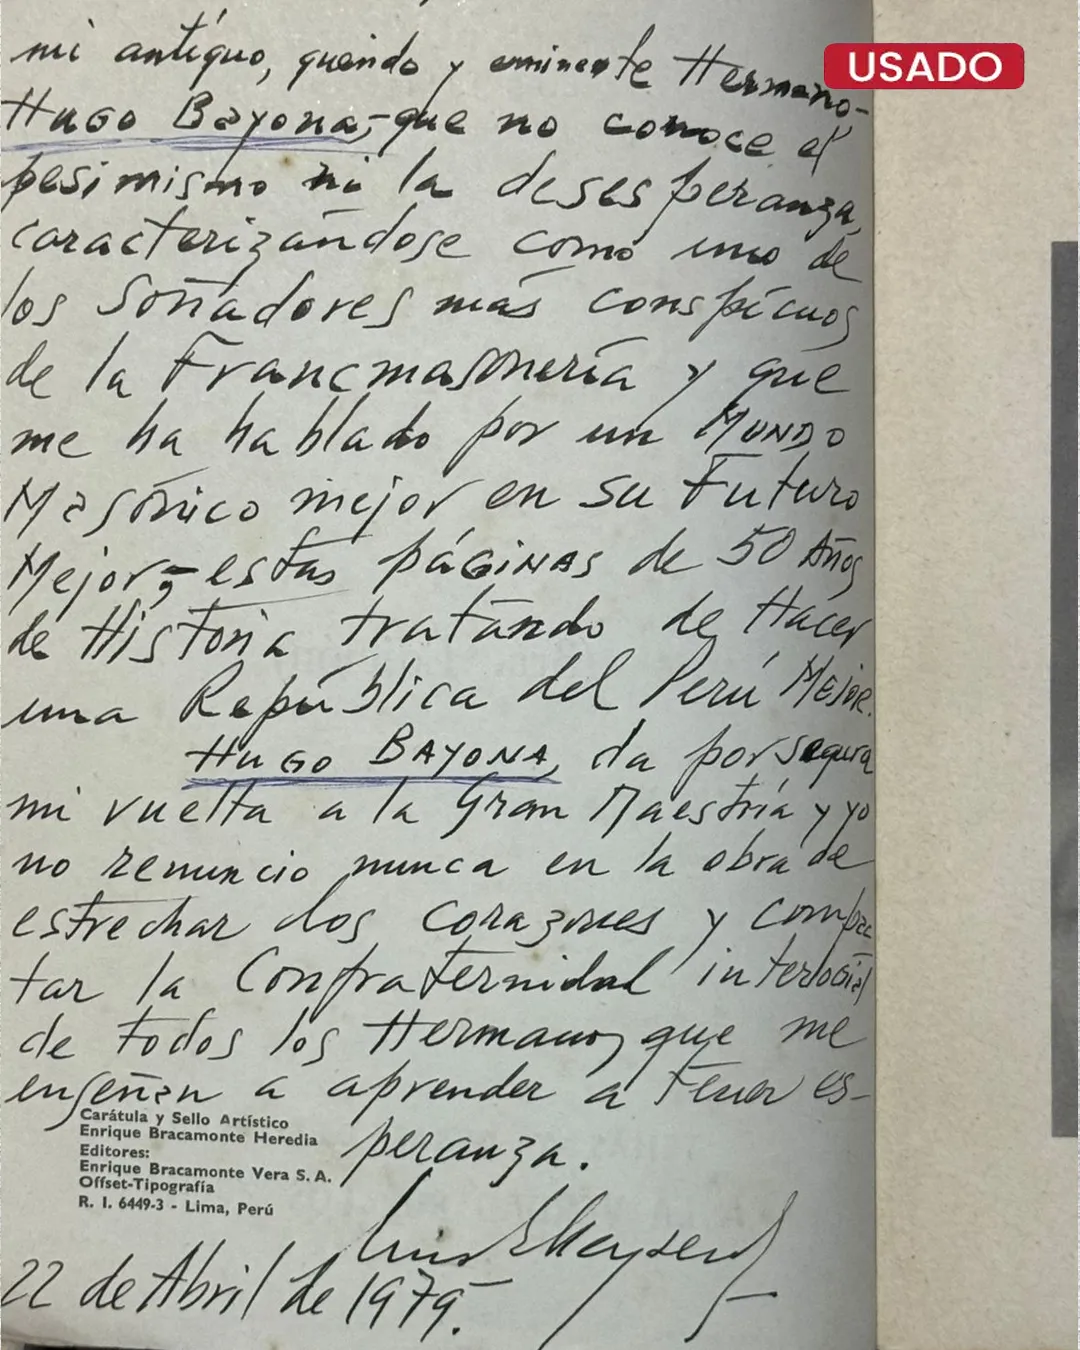 USADO
mi antíguo, querido y eminente Hermano-
Hugo Bayona,-que no conoce el
pesimismo ni la desesperanza,
caracterizándose como uno de
los Soñadores más conspícuos
de la Francmasonería y que
me ha hablado por un MUNDO
Masónico mejor en su Futuro
Mejor,-estas páGINAS de 50 Años
de Historia tratando de Hacer
una República del Perú MEJOR.
HUGO BAYONA, da por segura
mi vuelta a la Gran Maestría y yo
no renuncio nunca en la obra de
estrechar los corazones y compac
tar la Confraternidad interocial
de todos los Hermanos que me
enseñan a aprender a Tener es-
peranza.
Carátula y Sello Artístico
Enrique Bracamonte Heredia
Editores:
Enrique Bracamonte Vera S. A.
Offset-Tipografía
R. I. 6449-3 - Lima, Perú
Luis
22 de Abril de 1979.